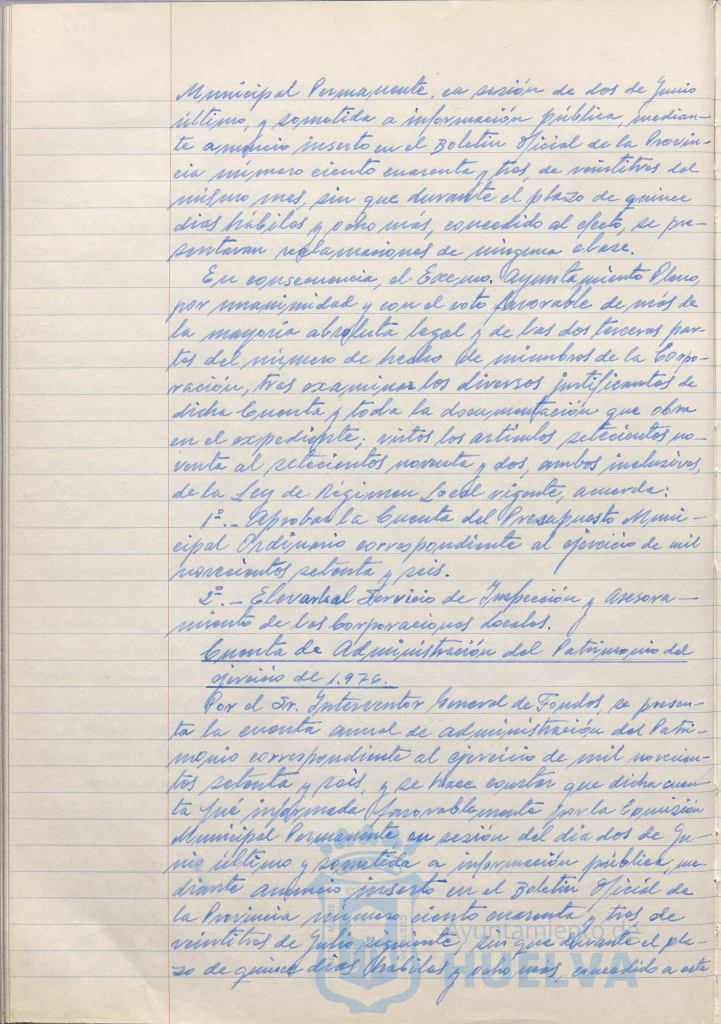 Municipal Permanente, en sesión de dos de Junio
último, y sometida a información pública, median-
te anuncio inserto en el Boletín Oficial de la Provin-
cia número ciento cuarenta y tres, de veintitres del
mismo mes, sin que durante el plazo de quince
dias hábiles y ocho más, concedido al efecto, se pre-
sentaran reclamaciones de ninguna clase.
En consecuencia, el Excmo. Ayuntamiento Pleno,
por unanimidad y con el voto favorable de más de
la mayoría absoluta legal y de las dos terceras par-
tes del número de hecho de miembros de la Corpo-
ración, tras examinar los diversos justificantes de
dicha Cuenta y toda la documentación que obra
en el expediente; vistos los artículos setecientos no-
venta al setecientos noventa y dos, ambos inclusives,
de la Ley de Régimen Local vigente, acuerda:
1º.- Aprobar la Cuenta del Presupuesto Muni-
cipal Ordinario correspondiente al ejercicio de mil
novecientos setenta y seis.
2º.- Elevarla al Servicio de Inspección y Asesora-
miento de las Corporaciones Locales.
Cuenta de Administración del Patrimonio del
ejercicio de 1.976.
Por el Sr. Interventor General de Fondos, se presen-
ta la cuenta anual de administración del Patri-
monio correspondiente al ejercicio de mil novecien-
tos setenta y seis, y se hace constar que dicha cuen-
ta fué informada favorablemente por la Comisión
Municipal Permanente en sesión del dia dos de Ju-
nio último y sometida a información pública, me-
diante anuncio inserto en el Boletín Oficial de
la Provincia número ciento cuarenta y tres de
veintitres de Julio siguiente, sin que durante el pla-
zo de quince dias hábiles y ocho mas, concedido a este
Ayuntamiento de
HUELVA